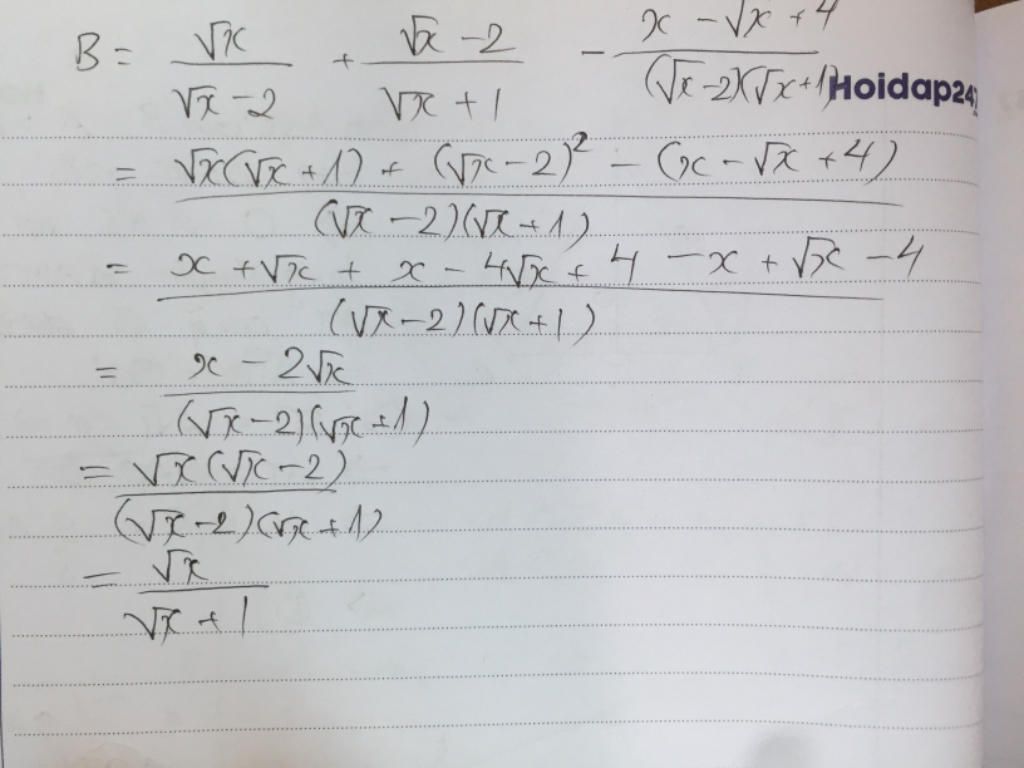 B = √x / (√x - 2) + (√x - 2) / (√x + 1) - (x - √x + 4) / ((√x - 2)(√x + 1))
Hoidap247
= (√x(√x + 1) + (√x - 2)² - (x - √x + 4)) / ((√x - 2)(√x + 1))
= (x + √x + x - 4√x + 4 - x + √x - 4) / ((√x - 2)(√x + 1))
= (x - 2√x) / ((√x - 2)(√x + 1))
= √x(√x - 2) / ((√x - 2)(√x + 1))
= √x / (√x + 1)